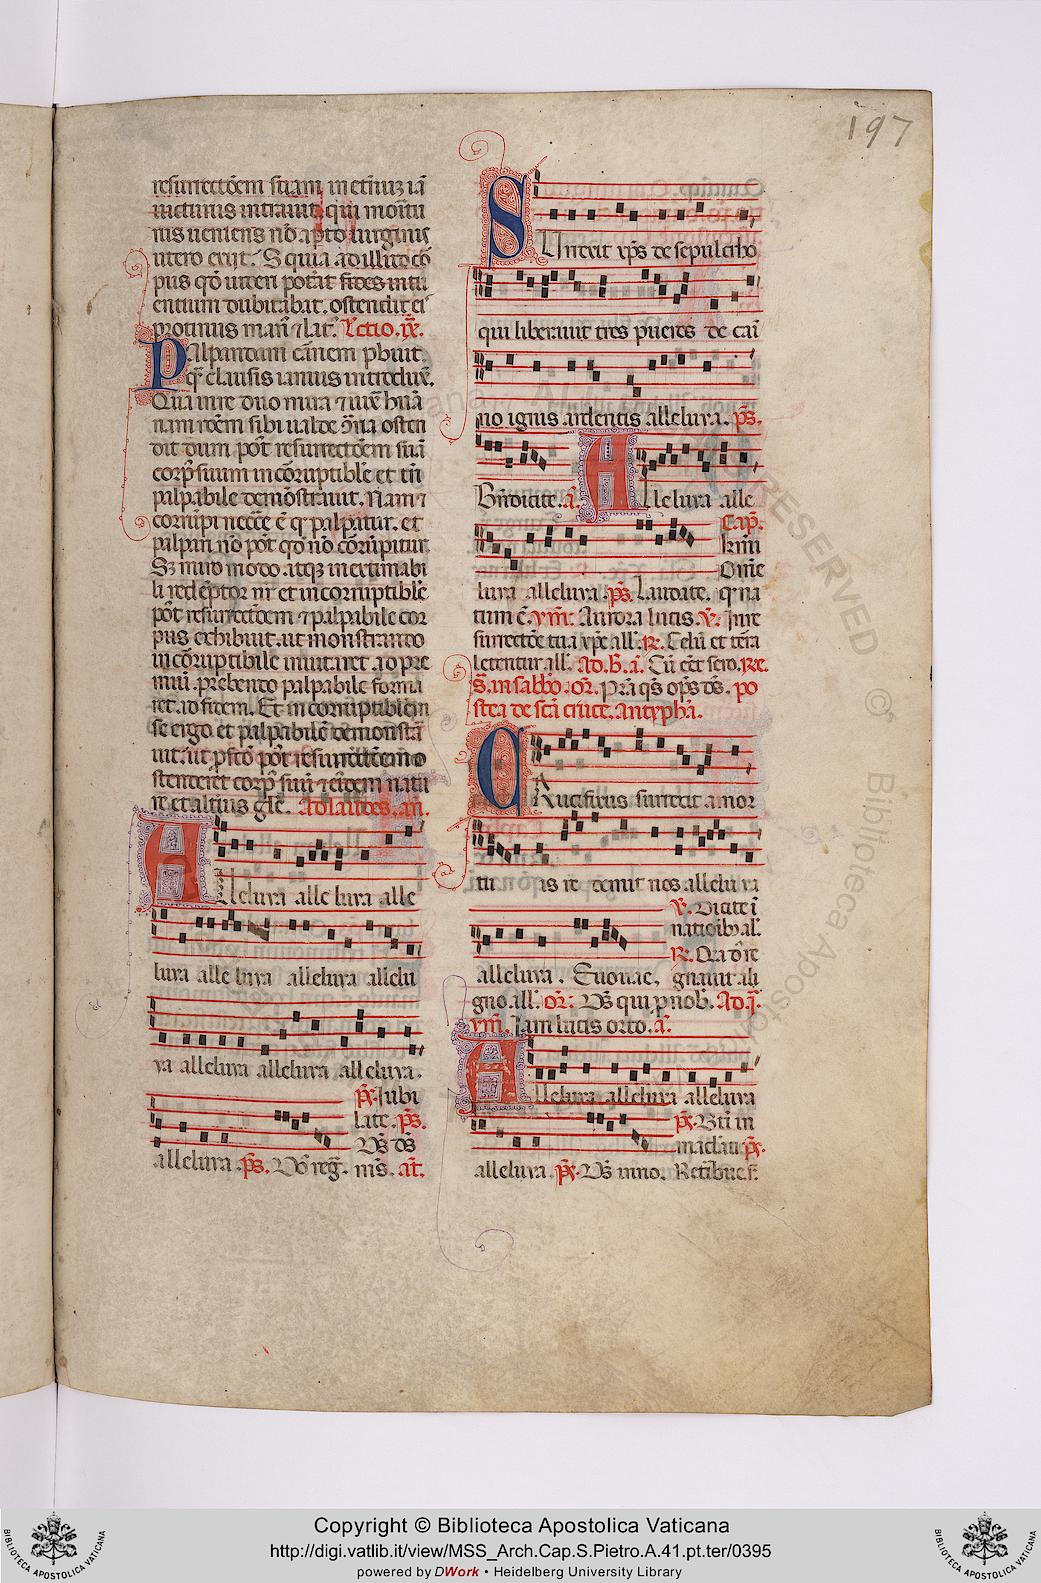 197
resurrectōem suam in etn̄uz iā
uicturus intrauit, qui moritu
rus ueniens nō apto uirginis
utero exijt. S quia ad illud cō
pus qd̄ uiden potāt fides intu
entium dubitabat. ostendit ei
protinus man' ⁊ lat'. Lctio. ix.
Palpandam carnem p̄buit
q̄ clausis ianuis introduxē.
Qua in re duo mira ⁊ iuxᷓ humā
nam rōem sibi ualde ꝯtria osten
dit dum pōt resurrectōem suā
corp' suum incorruptibile et tn̄
palpabile demōstrauit. Nam ⁊
corrūpi necc̄e ē q̄ palpatur. et
palpari nō pōt qd̄ nō corrūpitur
Sz miro modo atqz inextimabi
li redēptor nr̄ et incorruptibile
pōt resurrectōem ⁊ palpabile cor
pus exhibuit. ut monstrando
incorruptibile inuitaret ad pre
mium. prebendo palpabile forma
ret ad fidem. Et incorruptibilem
se ergo et palpabilē demonstra
uit. ut ꝓfcō pōt resurrectōem o
stenderet corp' suū ⁊ eiusdem natu
re et alterius glē. Ad laudes. an̄.
Alleluya alle luya alle
luya alle luya alleluya allelu
ya alleluya alleluya alleluya.
Ps̄. Jubi
late. ps̄.
Ds̄ ds̄
alleluya. ps̄. Dn̄s reḡ. m̄s. an̄.
Surrexit xp̄s de sepulchro
qui liberauit tres pueros de cami
no ignis ardentis alleluya. ps̄.
Bn̄dicite. a. Alleluya alle
Cap.
Krīmi
Om̄e
luya alleluya. ps̄. Laudate. q̄ na
tum ē. ym̄. Aurora lucis. v̄. In re
surrectōe tua xp̄e all'. R̄. Celū et terra
letentur all'. Ad. b. a. Cū eēt sero. Re.
s̄. in sabbo. or̄. Prā qs̄ ōps ds̄. po
stea de scā cruce. Antypha.
Crucifixus surrexit a mor
tu is re demit nos alleluya
v̄. Dicite ī
nationibus al'.
R̄. Qa dn̄s re
alleluya. Euouae. gnauit a li
gno. all'. or̄. Ds̄ qui ꝓ nob. Ad. j.
ym̄. Jam lucis orto. a.
Alleluya alleluya alleluya
ps̄. Bti in
maclati ps̄.
alleluya. ps̄. Ds̄ in no. Retribue f.
RESERVED © Biblioteca Aposto
Copyright © Biblioteca Apostolica Vaticana
http://digi.vatlib.it/view/MSS_Arch.Cap.S.Pietro.A.41.pt.ter/0395
powered by DWork • Heidelberg University Library
BIBLIOTECA APOSTOLICA VATICANA
BIBLIOTECA APOSTOLICA VATICANA